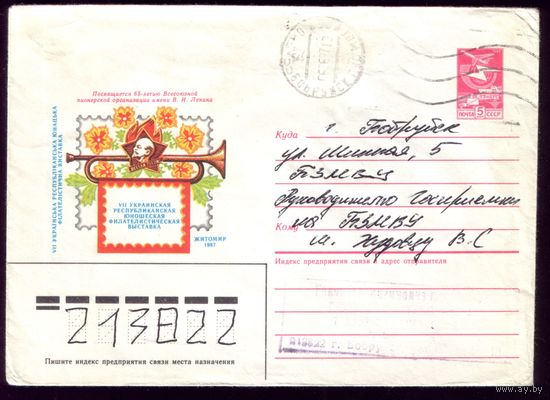 Посвящается 65-летию Всесоюзной
пионерской организации имени В. И. Ленина
VII УКРАЇНСЬКА РЕСПУБЛІКАНСЬКА ЮНАЦЬКА
ФІЛАТЕЛІСТИЧНА ВИСТАВКА
VII УКРАИНСКАЯ
РЕСПУБЛИКАНСКАЯ
ЮНОШЕСКАЯ
ФИЛАТЕЛИСТИЧЕСКАЯ
ВЫСТАВКА
ЖИТОМИР
1987
ПОЧТА 5 СССР
Куда г. Бобруйск
ул. Шинная, 5
БЗМВУ
Руководителю Госприемки
Кому на БЗМВУ
В.С
Индекс предприятия связи и адрес отправителя
213822 г. Бобру
213822
Пишите индекс предприятия связи места назначения
www.ay.by